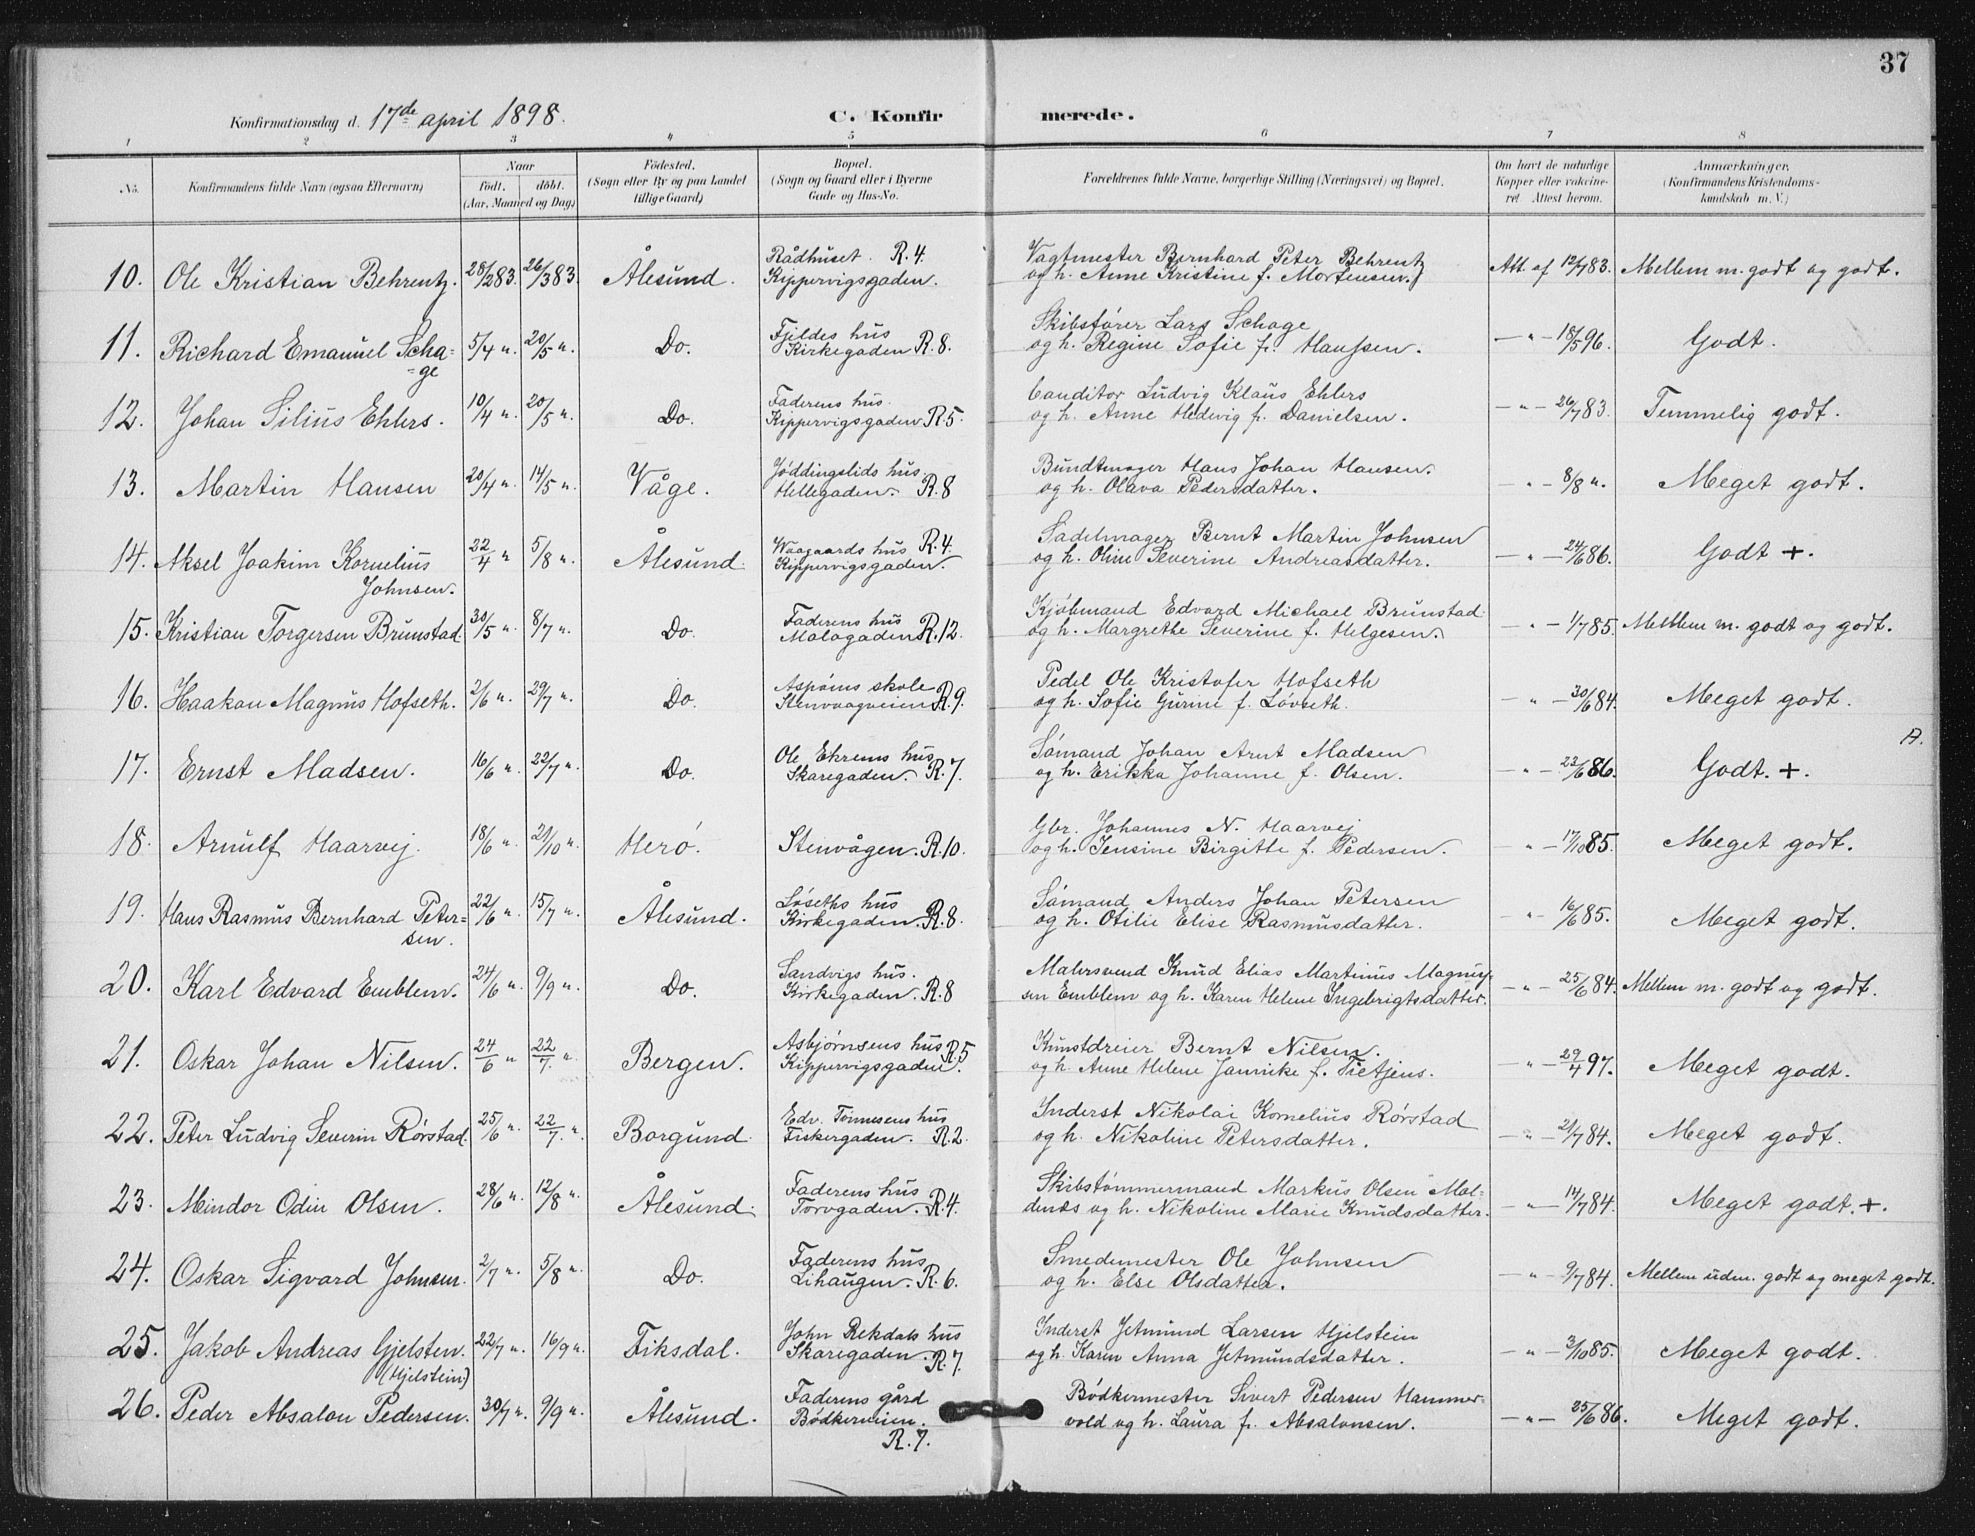 37
Konfirmationsdag d. 17de april 1898. C. Konfirmerede.
1 2 3 4 5 6 7 8
No. Konfirmandens fulde Navn (ogsaa Efternavn) Naar født. døbt. (Aar, Maaned og Dag) Fødested. (Sogn eller By og paa Landet tillige Gaard) Bopæl. (Sogn og Gaard eller i Byerne Gade og Hus-No. Forældrenes fulde Navne, borgerlige Stilling (Næringsvei) og Bopæl. Om havt de naturlige Kopper eller vakcineret. Attest herom. Anmærkninger. (Konfirmandens Kristendomskundskab m. V.)
10. Ole Kristian Behrentz. 28/2 83. 26/3 83. Ålesund. Rådhuset. R. 4. Kippervigsgaden. Vagtmester Bernhard Peter Behrentz og h. Anne Kristine f. Mortensen. Att. af 12/7 83. Mellem m. godt og godt.
11. Richard Emanuel Scha=
=ge 5/4 " 20/5 " Do. Fjeldes hus Kirkegaden R. 8. Skibsfører Lars Schage og h. Regine Sofie f. Hanssen. — " — 18/5 96. Godt.
12. Johan Silius Ehlers. 10/4 " 20/5 " Do. Faderens hus. Kippervigsgaden R. 5. Canditor Ludvig Klaus Ehlers og h. Anne Hedvig f. Danielsen. — " — 26/7 83. Temmelig godt.
13. Martin Hansen 20/4 " 14/5 " Våge. Jøddingslids hus. Hellegaden. R. 8 Bundtmager Hans Johan Hansen. og h. Olava Pedersdatter. — " — 8/8 ". Meget godt.
14. Aksel Joakim Kornelius
Johnsen. 22/4 " 5/8 " Ålesund. Waagaards hus R. 4. Kippervigsgaden. Sadelmager Bernt Martin Johnsen og h. Oline Severine Andreasdatter. — " — 24/6 86. Godt +.
15. Kristian Torgersen Brunstad. 30/5 " 8/7 " Do. Faderens hus Mologaden R. 12. Kjøbmand Edvard Michael Brunstad. og h. Margrethe Severine f. Helgesen. — " — 1/7 85. Mellem m. godt og godt.
16. Haakon Magnus Hofseth. 2/6 " 29/7 " Do. Aspøens skole Stenvaagveien R. 9. Pedel Ole Kristofer Hofseth og h. Sofie Gurine f. Løvseth. — " — 30/6 84. Meget godt.
17. Ernst Madsen. 16/6 " 22/7 " Do. Ole Ekrems hus Skaregaden. R. 7. Sømand Johan Arnt Madsen og h. Erikka Johanne f. Olsen. — " — 23/6 86. Godt. +. A.
18. Arnulf Haarvej. 18/6 " 21/10 " Herø. Stenvågen. R. 10. Gbr. Johannes N. Haarvej og h. Jensine Birgitte f. Pedersen. — " — 17/10 85. Meget godt.
19. Hans Rasmus Bernhard Peter=
sen. 22/6 " 15/7 " Ålesund. Løseths hus Kirkegaden. R. 8. Sømand Anders Johan Petersen og h. Otilie Elise Rasmusdatter. " — 16/6 85. Meget godt.
20. Karl Edvard Emblem. 24/6 " 9/9 " Do. Sandvigs hus. Kirkegaden. R. 8 Malersvend Knud Elias Martinus Magnus=
sen Emblem og h. Karen Helene Ingebrigtsdatter. — " — 25/6 84. Mellem m. godt og godt.
21. Oskar Johan Nilsen. 24/6 " 22/7 " Bergen. Asbjørnsens hus R. 5 Kippervigsgaden. Kunstdreier Bernt Nilsen. og h. Anne Helene Jannike f. Tietjens. — " — 29/4 97. Meget godt.
22. Peter Ludvig Severin Rørstad. 25/6 " 22/7 " Borgund. Edv. Tønnesens hus Fiskergaden. R. 2 Inderst Nikolai Kornelius Rørstad og h. Nikoline Petersdatter. — " — 21/7 84. Meget godt.
23. Meindor Odin Olsen. 28/6 " 12/8 " Ålesund. Faderens hus Torvgaden. R. 4. Skibstømmermand Markus Olsen Mol=
denæs og h. Nikoline Marie Knudsdatter. — " — 14/7 84. Meget godt. +.
24. Oskar Sigvard Johnsen. 2/7 " 5/8 " Do. Faderens hus Lihaugen. R. 6. Smedemester Ole Johnsen og h. Else Olsdatter. — " — 9/7 84. Mellem udm. godt og meget godt.
25. Jakob Andreas Gjelsten.
(Hjelstein) 22/7 " 16/9 " Fiksdal. John Rekdals hus Skaregaden. R. 7. Inderst Jetmund Larsen Hjelstein og h. Karen Anna Jetmundsdatter. — " — 3/10 85. Meget godt.
26. Peder Absalon Pedersen. 30/7 " 9/9 " Ålesund. Faderens gård Bødkerveien. R. 7. Bødkermester Sivert Pedersen Hammer=
vold og h. Laura f. Absalonsen. — " — 25/6 86. Meget godt.